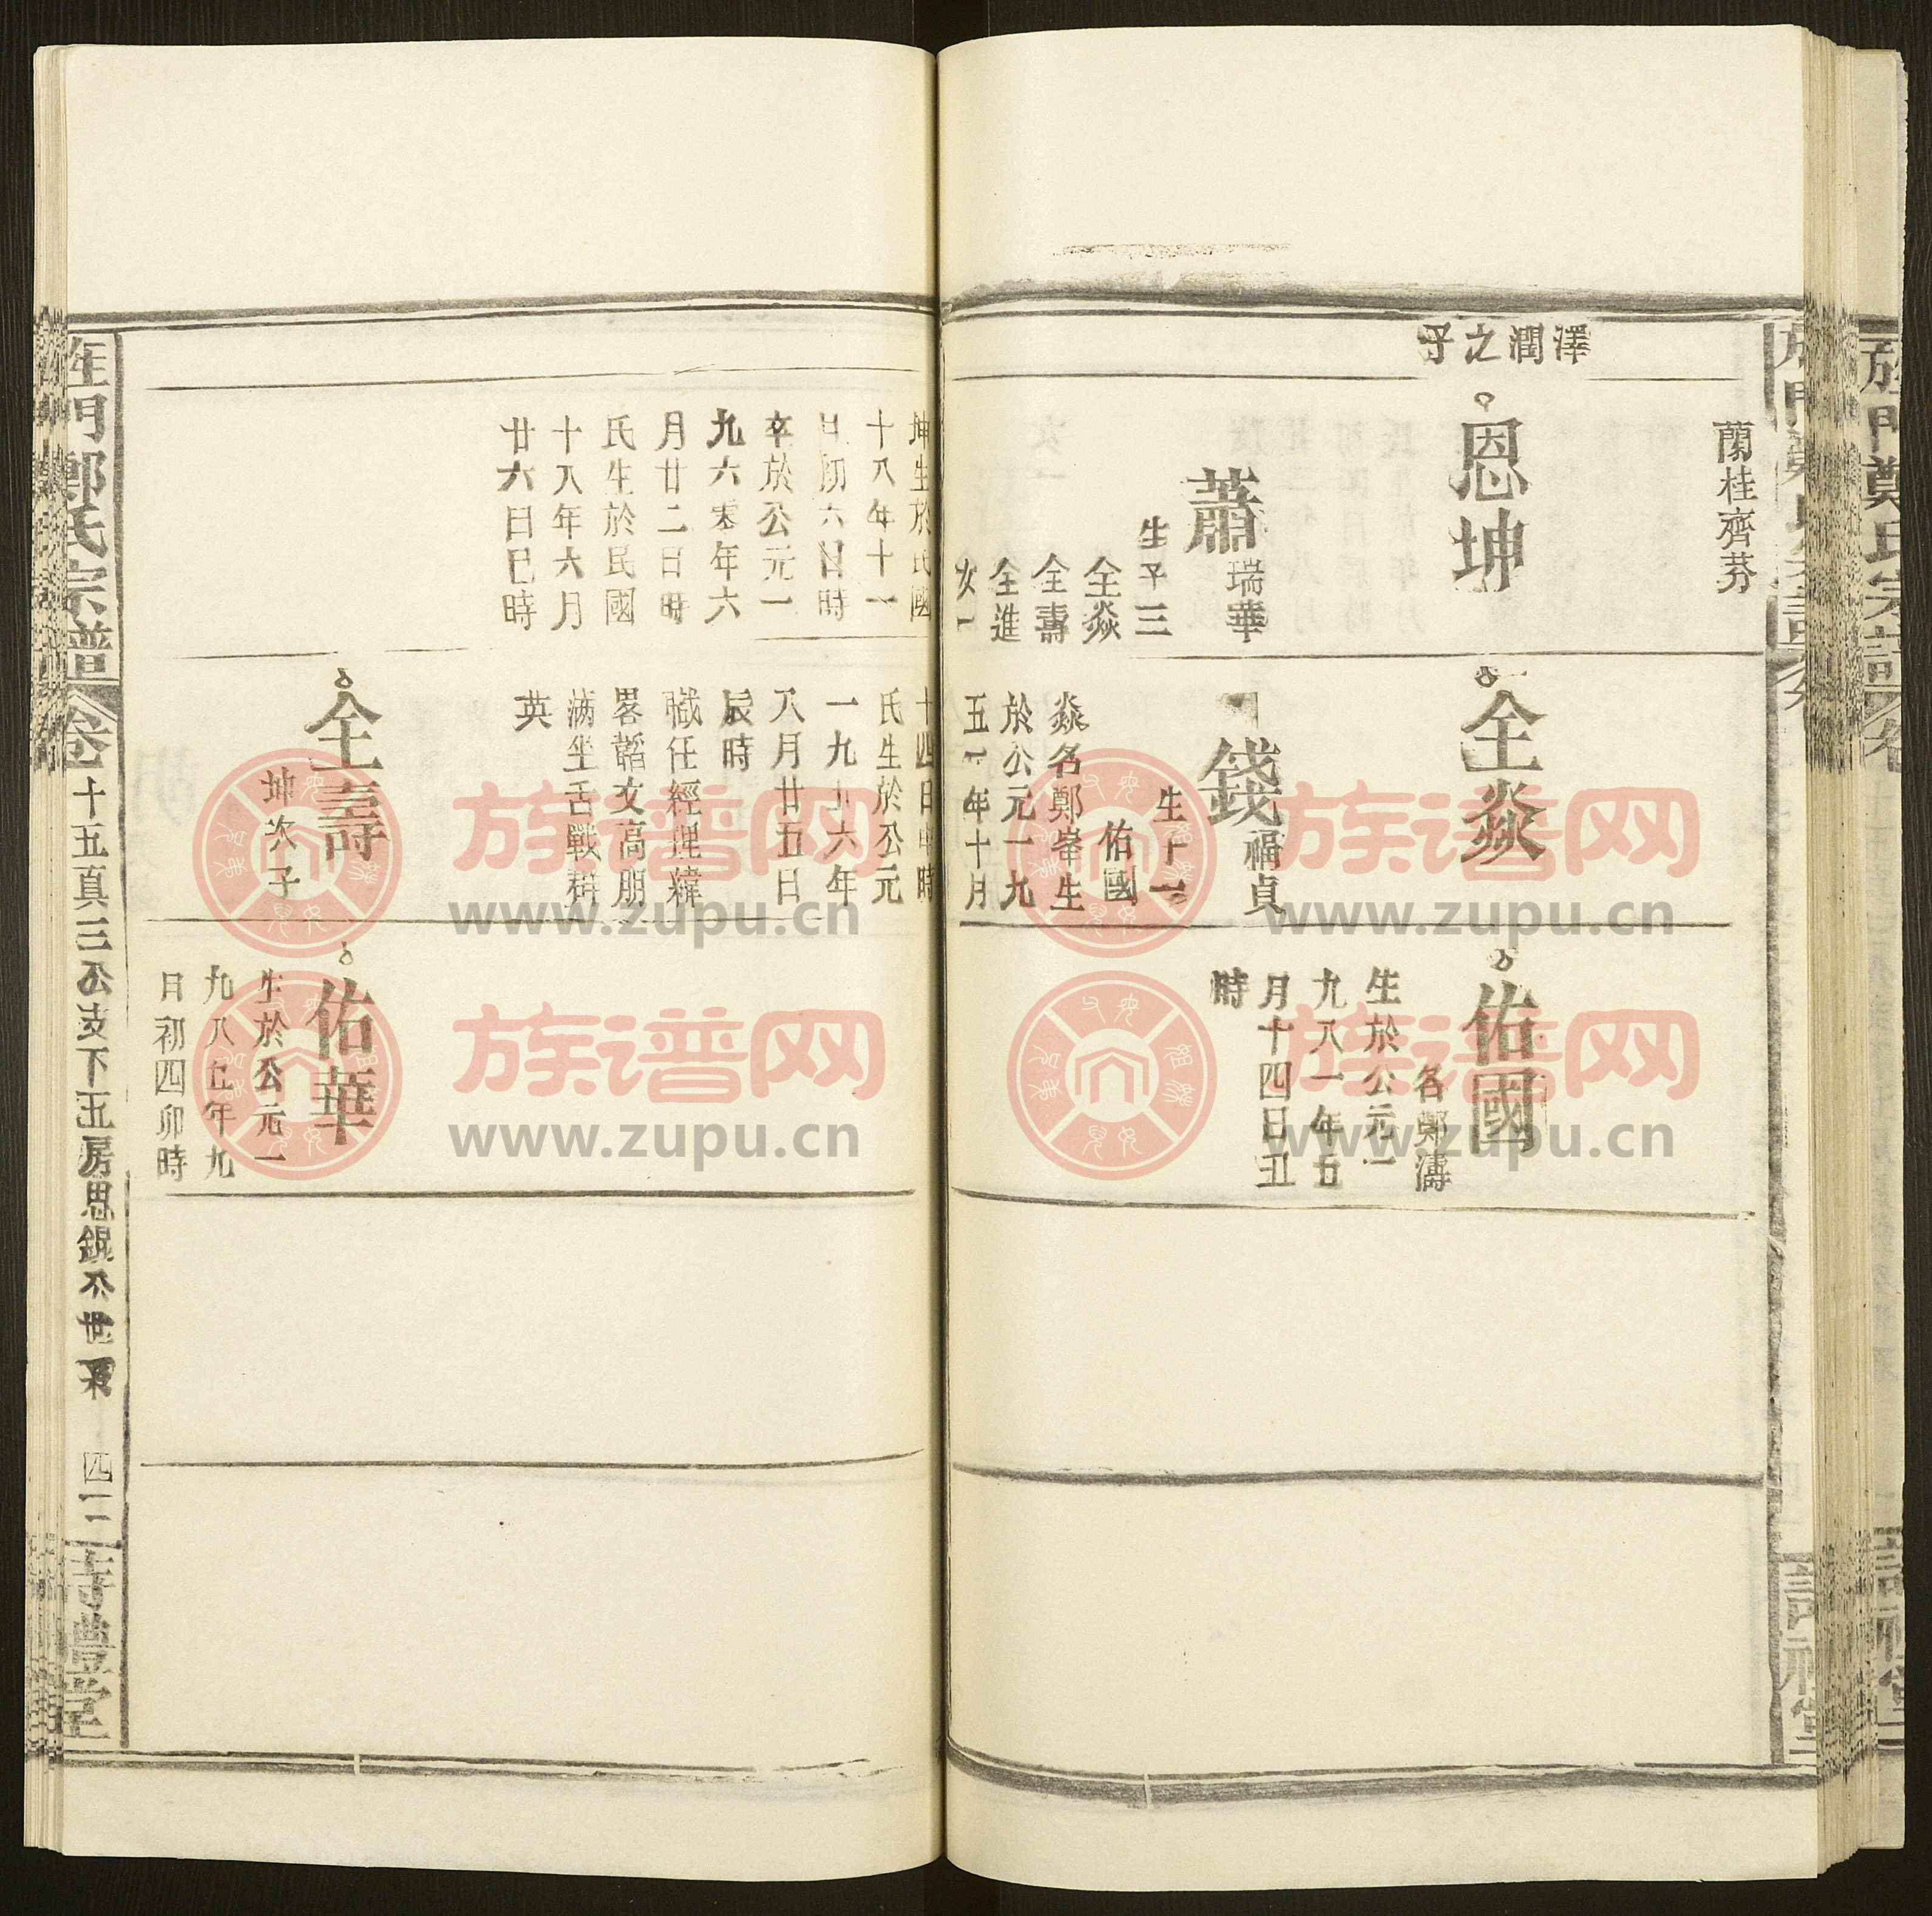 蘭桂齊芬
澤潤之子
恩坤
蕭瑞華
生子三
全焱
全壽
全進
女一
坤生於民國
十八年十一
月初六日時
卒於公元一
九六零年六
月廿二日時
氏生於民國
十八年六月
廿六日巳時
全焱
錢福貞
生子一
佑國
焱名鄭峯生
於公元一九
五一年十月
十四日申時
氏生於公元
一九五六年
八月廿五日
辰時
職任經理緯
畧韜文高朋
滿坐舌戰群
英
全壽
坤次子
佑國
名鄭濤
生於公元一
九八一年五
月十四日丑
時
佑華
生於公元一
九八五年九
月初四卯時
旌門鄭氏宗譜
卷十五真三公支下五房思錕公世系
四十二
詩禮堂
族谱网
www.zupu.cn
族谱网
www.zupu.cn
族谱网
www.zupu.cn
族谱网
www.zupu.cn